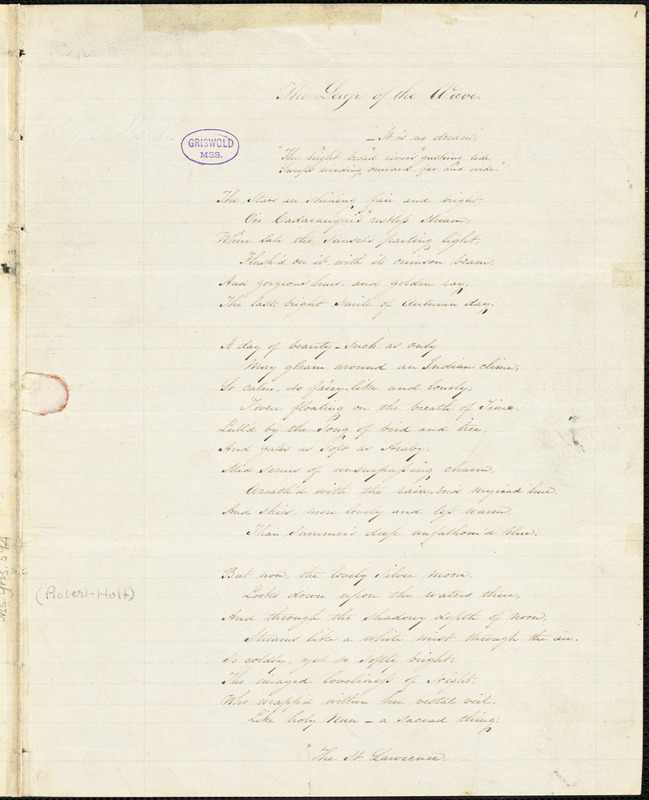 1
The Leap of the Wave.
GRISWOLD
MSS.
— It is no dream,
"The bright broad river's gushing tide,
Sweeps winding onward, far and wide."
The Stars are shining fair and bright,
O'er Cadaraqui's* restless Stream,
Where late the Sunset's parting light,
Flush'd on it with its crimson beam,
And gorgeous hues, and golden ray,
The last bright Smile of Autumn day.
A day of beauty – such as only
May gleam around an Indian clime,
So calm, so fairy-like and lonely,
'Twere floating on the breath of Time.
Lull'd by the Song of bird and tree,
And gales as soft as Araby;
Mid Scenes of unsurpassing charm,
Wreath'd with the rain-bow's myriad hue,
And skies, more lovely and less warm
Than Summer's deep unfathom'd blue.
But now, the lovely Silver moon,
Looks down upon the waters there,
And through the Shadowy depth of noon,
Streams like a white mist through the air.
So coldly, yet so softly bright;
The imaged loveliness of Night;
Who wrapp'd within her vestal veil,
Like holy Nun – a sacred thing;
(Robert-Holt)
* The St. Lawrence.